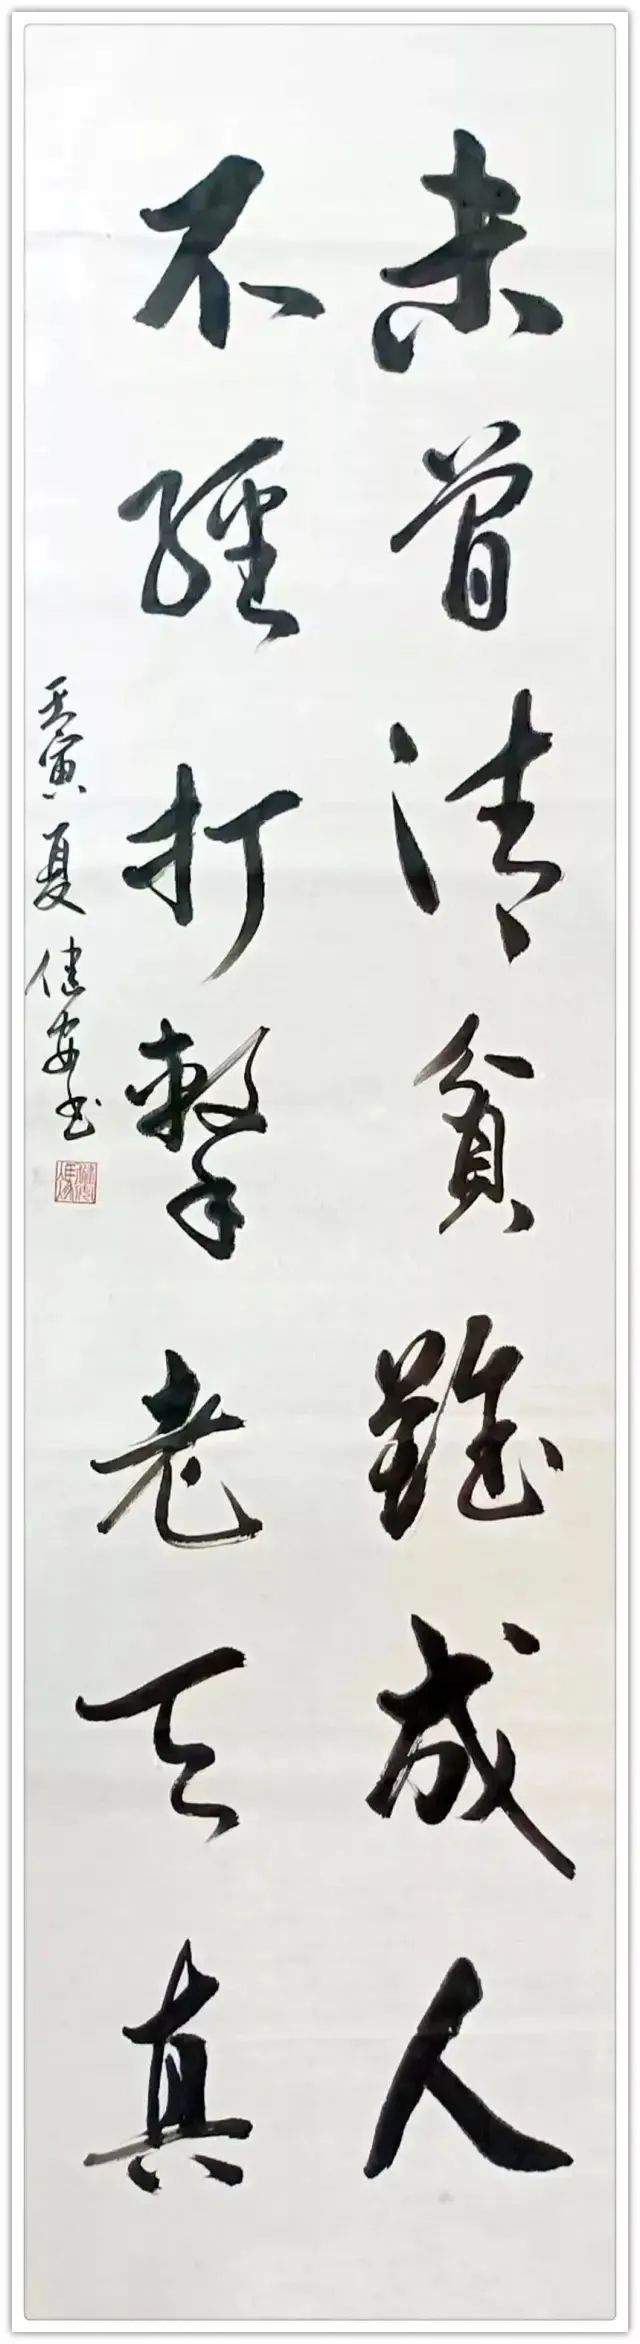 未曾清貧難成人
不經打擊老天真
壬寅夏健安书